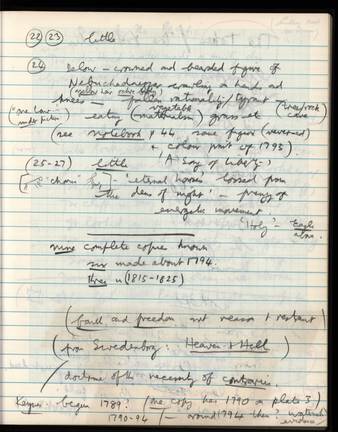 (22) (23) little
(24) below – crowned and bearded figure of
Nebuchadnezzar crawling on hands and
knees – fallen rationality / tyrant (tree/rock
vegetable cave)
eating (materialism) grass at
(see notebook p 44 same figure (reversed)
+ colour print of 1795)
(25-27) little 'A Song of Liberty'
'eternal horses loosed from
the dens of night' – frenzy of
energetic movement
'Holy' – Eagle
above.
nine complete copies known
six made about 1794
three in (1815-1825)
and freedom not reason & restraint)
(from Swedenborg: Heaven & Hell)
doctrine of the necessity of contraries.
Keynes: begun 1789? (one copy has 1790 on plate 3.)
1790-94 – around 1794 then? watermark
evidence